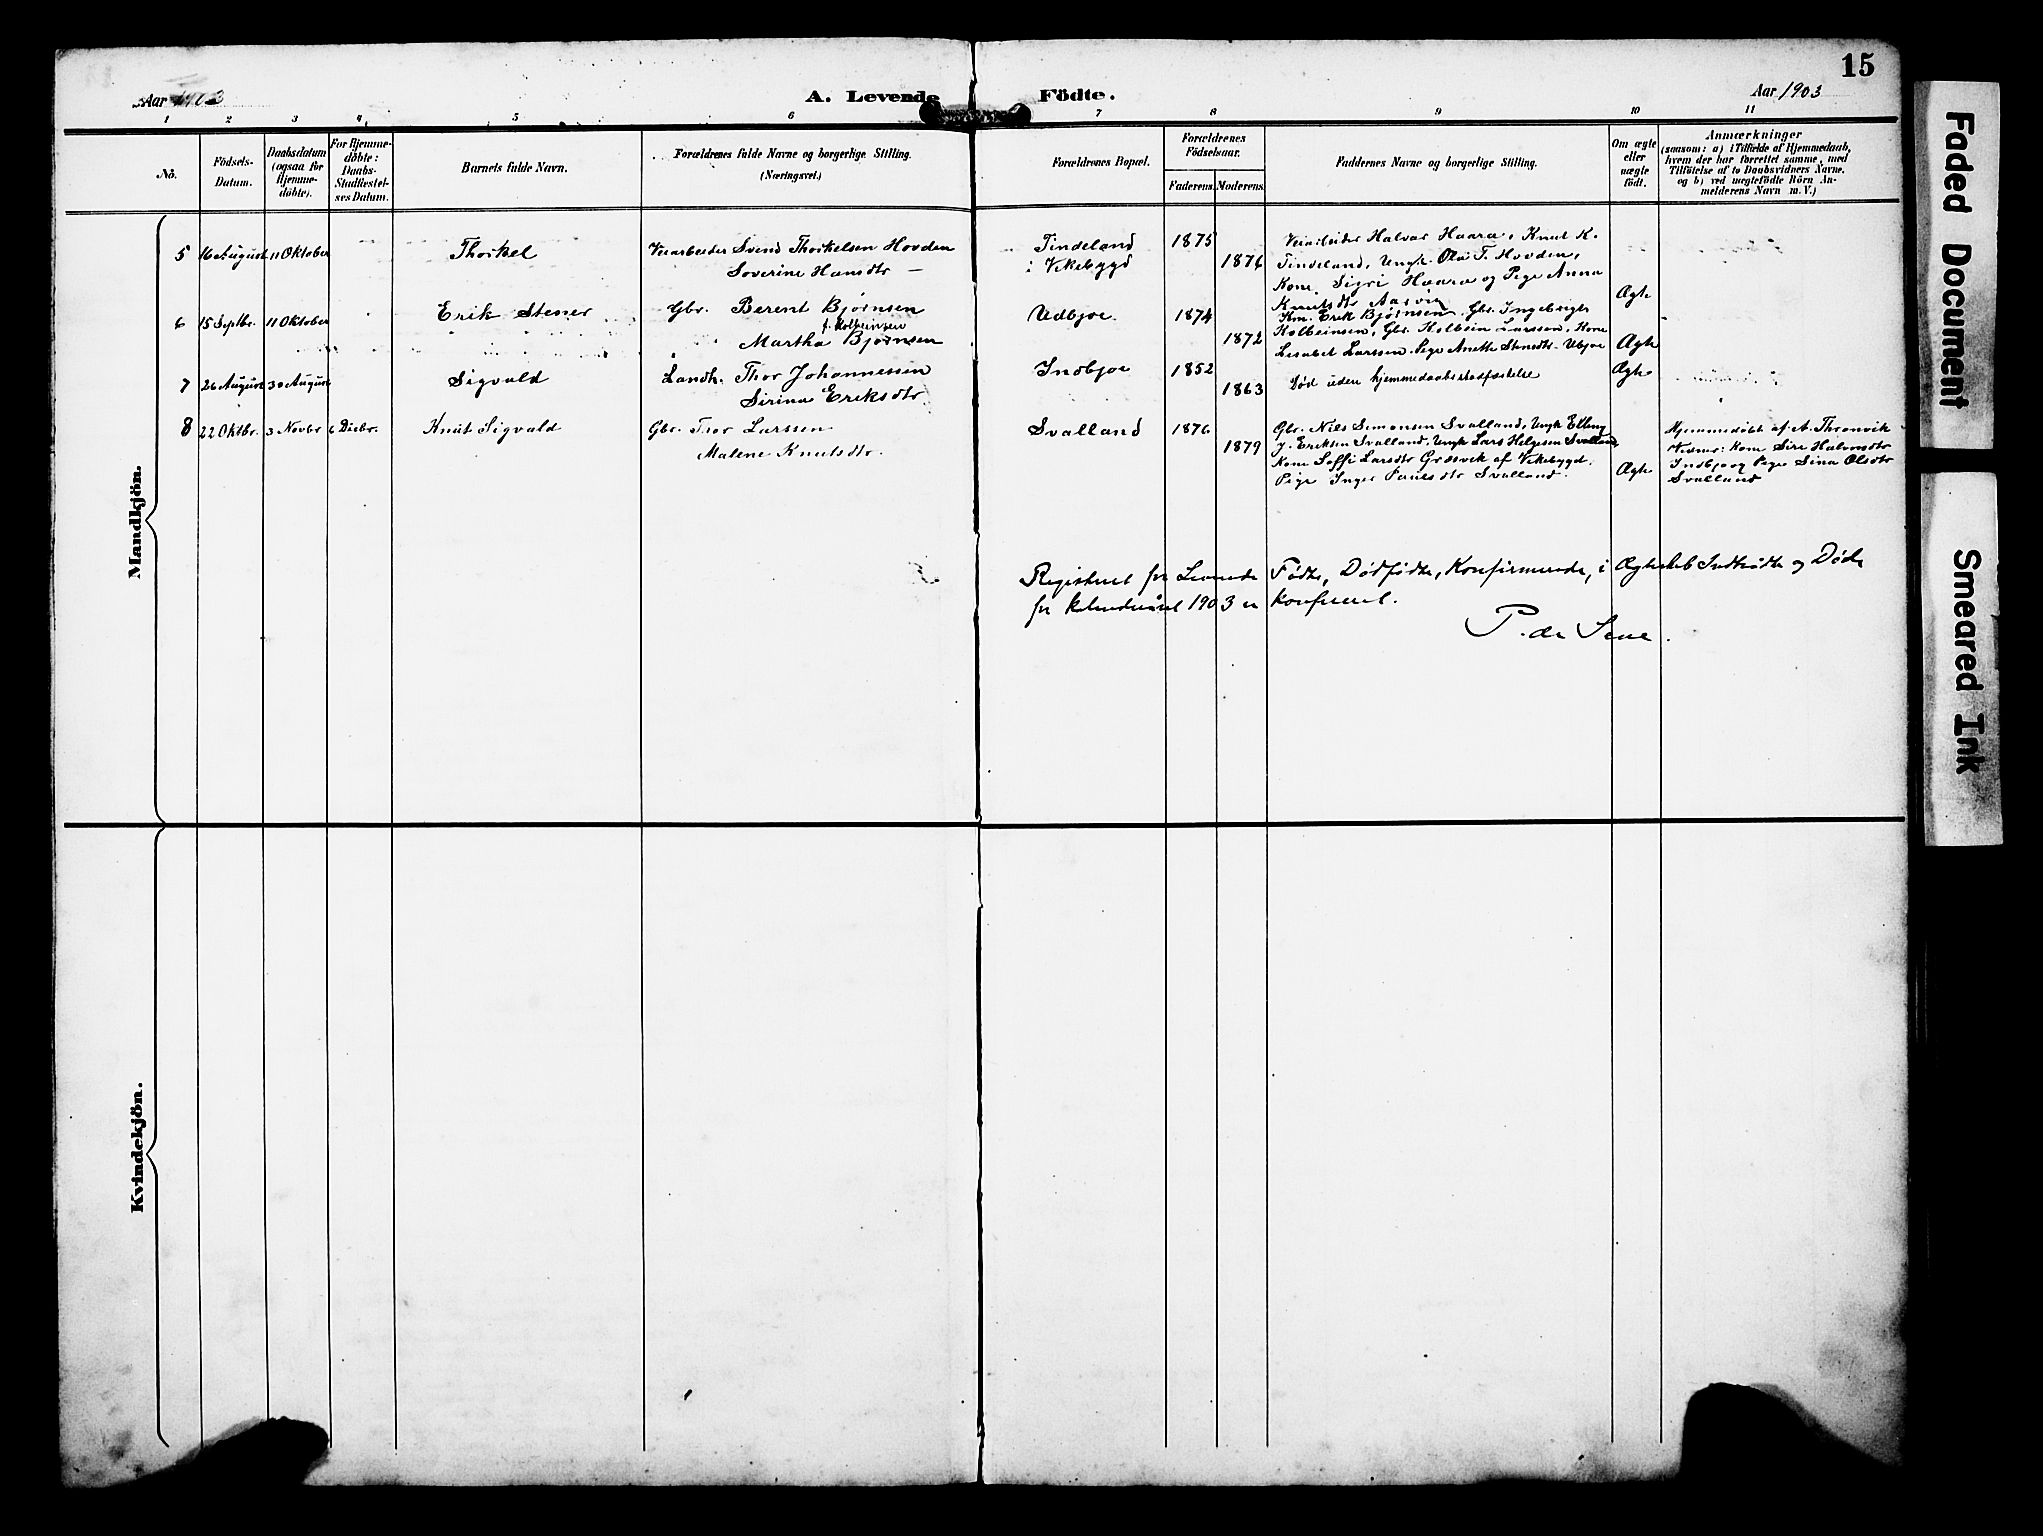 15
Aar 1903
A. Levende Födte.
Aar 1903
1 2 3 4 5 6 7 8 9 10 11
No.
Födsels-
Datum.
Daabsdatum
(ogsaa for
Hjemme-
döbte).
For Hjemme-
döbte:
Daabs-
Stadfæstel-
ses Datum.
Barnets fulde Navn.
Forældrenes fulde Navne og borgerlige Stilling.
(Næringsvei.)
Forældrenes Bopæl.
Forældrenes
Födselsaar.
Faderens.
Moderens.
Faddernes Navne og borgerlige Stilling.
Om ægte
eller
uægte
födt.
Anmærkninger
(saasom: a) i Tilfælde af Hjemmedaab,
hvem der har forrettet samme, med
Tilföielse af to Daabsvidners Navne.
og b) ved uægtefödte Börn An-
melderens Navn m. V.)
Mandkjön.
5 16 August 11 Oktober Thorkel Veiarbeider Svend Thorkelsen Hovden
Soverine Hansdtr
Tindeland
i Vikebygd
1875
1876
Veiarbeider Halvar Haara, Knut K.
Tindeland, Ungk. Ola T. Hovden,
Kone Sigri Haara og Pige Anna
Knutsdtr Aasvik
Ægte
6 15 Septbr. 11 Oktober Erik Stener Gbr. Berent Bjørnsen
f. Kolbeinsen
Martha Bjørnsen
Udbjoe.
1874
1872
Km. Erik Bjørnsen, Gbr. Ingebrigt
Kolbeinsen, Gbr. Kolbein Larssen, Kone
Lisabet Larssen, Pige Anette Stensdtr. Ubjoe
Ægte
7 26 August 30 August Sigvald Landh. Thor Johannessen
Sirina Eriksdtr
Indbjoe
1852
1863
Død uden hjemmedaabsstadfæstelse
Ægte
8 22 Oktbr. 3 Novbr 6 Decbr. Knut Sigvald Gbr. Thor Larssen
Malene Knutsdtr.
Svalland
1876
1879
Gbr. Nils Simonsen Svalland, Ungk Elling
J. Eriksen Svalland, Ungk Lars Helgesen Svalland
Kone Soffi Larsdtr Græsvik af Vikebygd.
Pige Inger Paulsdtr Svalland.
Ægte
Hjemmedøbt af A. Thronvik
Vidner: Kone Siri Halvorsdtr
Indbjo og Pige Sina Olsdtr
Svalland
Registeret for Levende Fødte, Dødfødte, Konfirmerede, i Ægteskab Indtrådte og Døde
for kalenderåret 1903 er konfereret.
P. de Seue.
Kvindekjön.
Faded Document
Smeared Ink